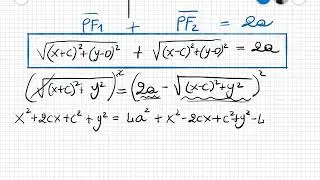 PF₁ + PF₂ = 2a
√(x+c)²+(y-0)² + √(x-c)²+(y-0)² = 2a
(√(x+c)²+y²)² = (2a - √(x-c)²+y²)²
x²+2cx+c²+y² = 4a²+x²-2cx+c²+y²-4